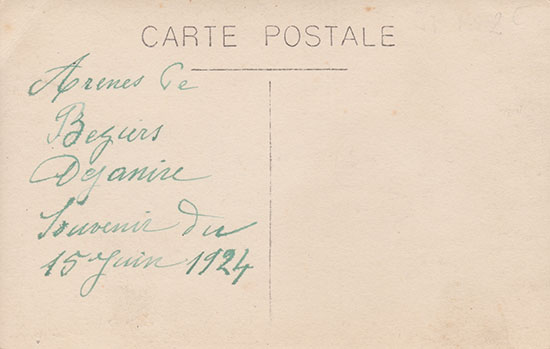 CARTE POSTALE
Arenes de
Beziers
Dejanire
Souvenir du
15 Juin 1924